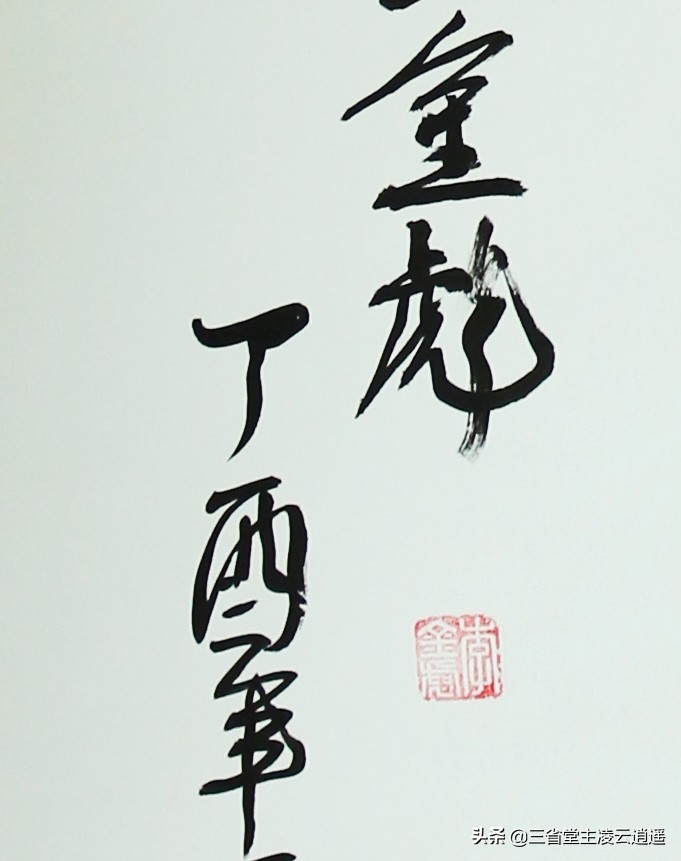 金彪
丁酉年
李金彪
头条 @三省堂主凌云逍遥